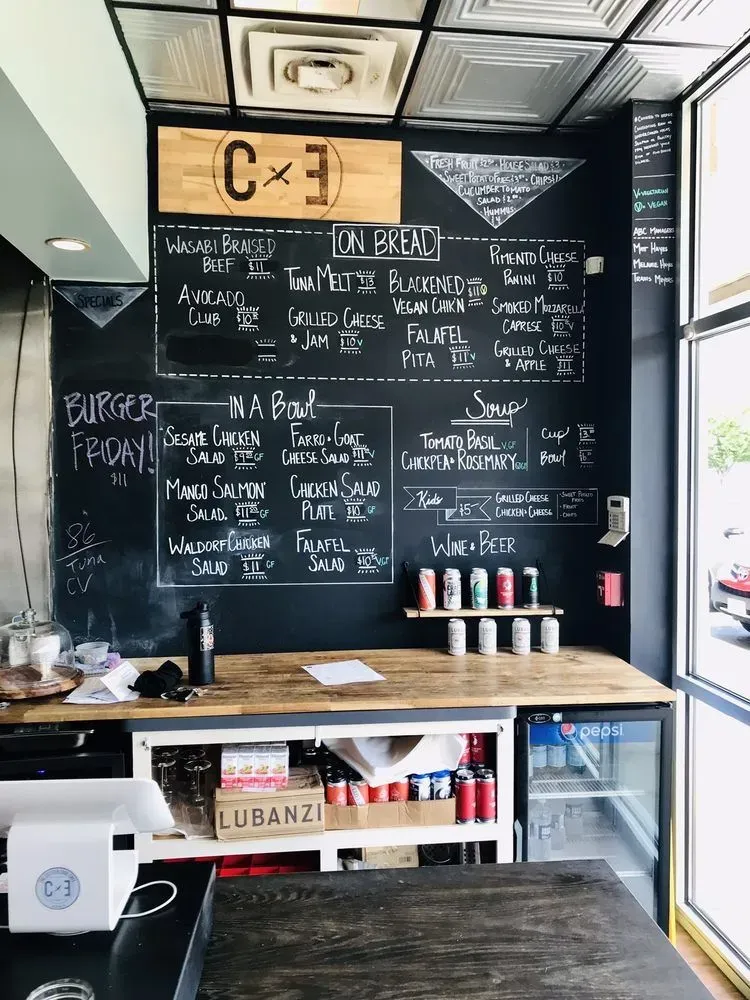 C E
FRESH FRUIT $2.50 • HOUSE SALAD $3
SWEET POTATO FRIES $3.50 • CHIPS $1
CUCUMBER TOMATO
SALAD $2.00
HUMMUS
$4
V=VEGETARIAN
V=VEGAN
ABC MANAGERS
MATT HAYES
MELANIE HAYES
TRAVIS MYERS
SPECIALS
BURGER
FRIDAY!
$11
86
TUNA
CV
ON BREAD
WASABI BRAISED
BEEF $11
AVOCADO
CLUB $10
TUNA MELT $13
GRILLED CHEESE
& JAM $10 V
BLACKENED
VEGAN CHIK'N $11 V
FALAFEL
PITA $11 V
PIMENTO CHEESE
PANINI $10
SMOKED MOZZARELLA
CAPRESE $10 V
GRILLED CHEESE
& APPLE $11
IN A Bowl
SESAME CHICKEN
SALAD GF
MANGO SALMON
SALAD. GF
WALDORF CHICKEN
SALAD $11 GF
FARRO & GOAT
CHEESE SALAD $11 V
CHICKEN SALAD
PLATE $10 GF
FALAFEL
SALAD V GF
Soup
TOMATO BASIL V, GF
CHICKPEA & ROSEMARY
CUP
BOWL
Kids
$5
GRILLED CHEESE
CHICKEN & CHEESE
-SWEET POTATO
FRIES
-FRUIT
-CHIPS
WINE & BEER
LUBANZI
pepsi
C E